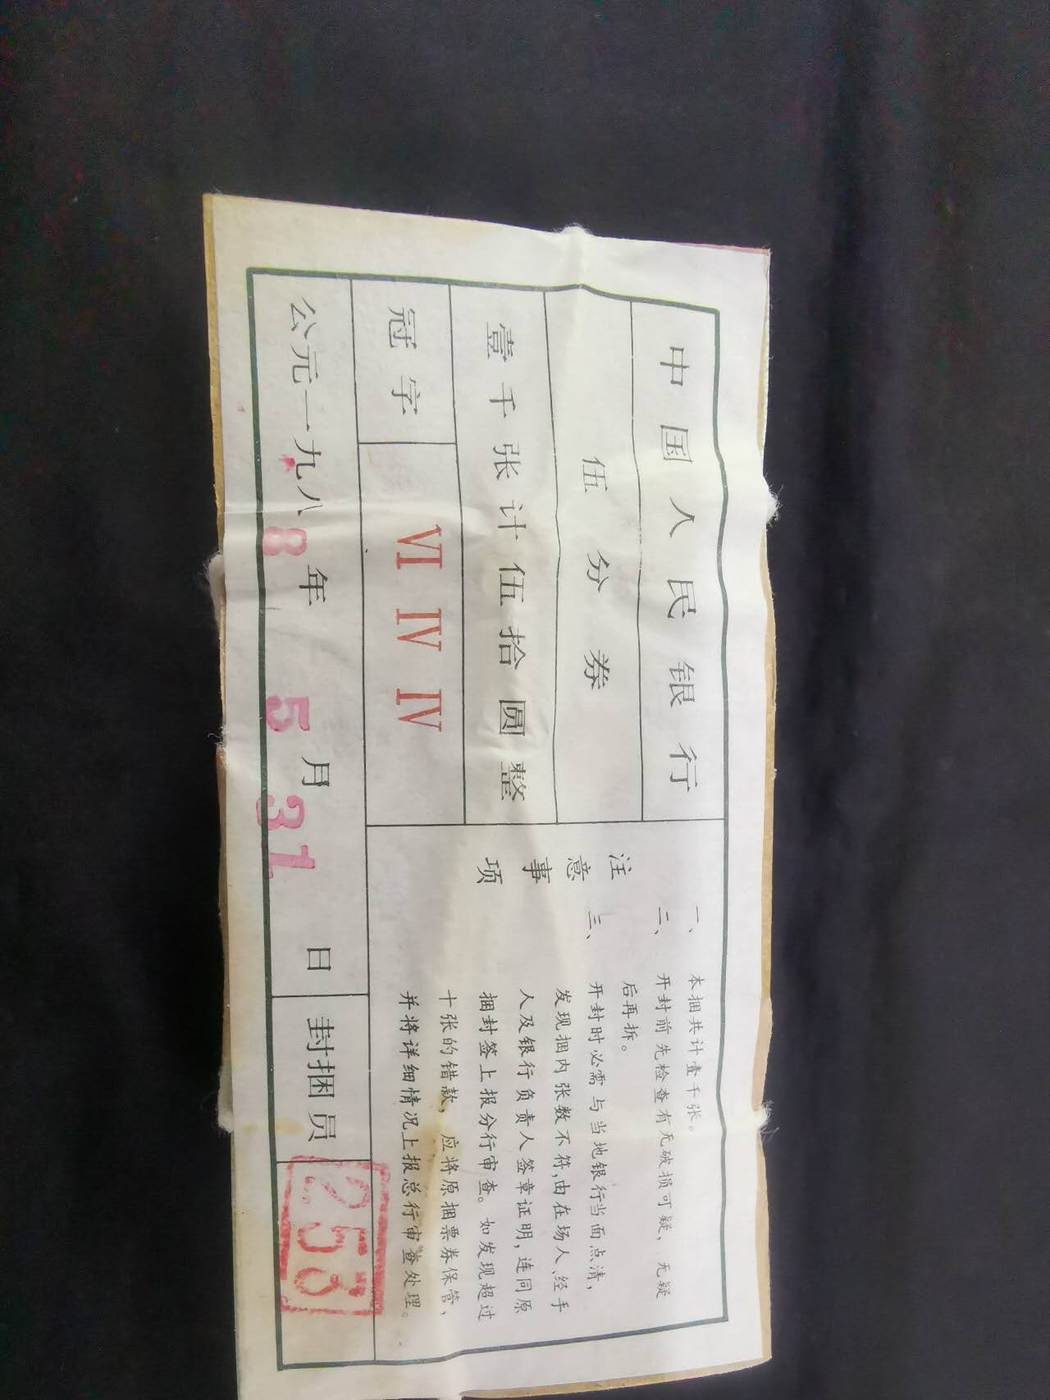 中国人民银行
伍分券
壹千张计伍拾圆整
冠字 VI IV IV
公元一九八8年5月31日
注意事项
一、本捆共计壹千张。
二、开封前先检查有无破损可疑，无疑
后再拆。
三、开封时必需与当地银行当面点清，
发现捆内张数不符，由在场人、经手
人及银行负责人签章证明，连同原
捆封签上报分行审查。如发现超过
十张的错款，应将原捆票券保管，
并将详细情况上报总行审查处理。
封捆员 253